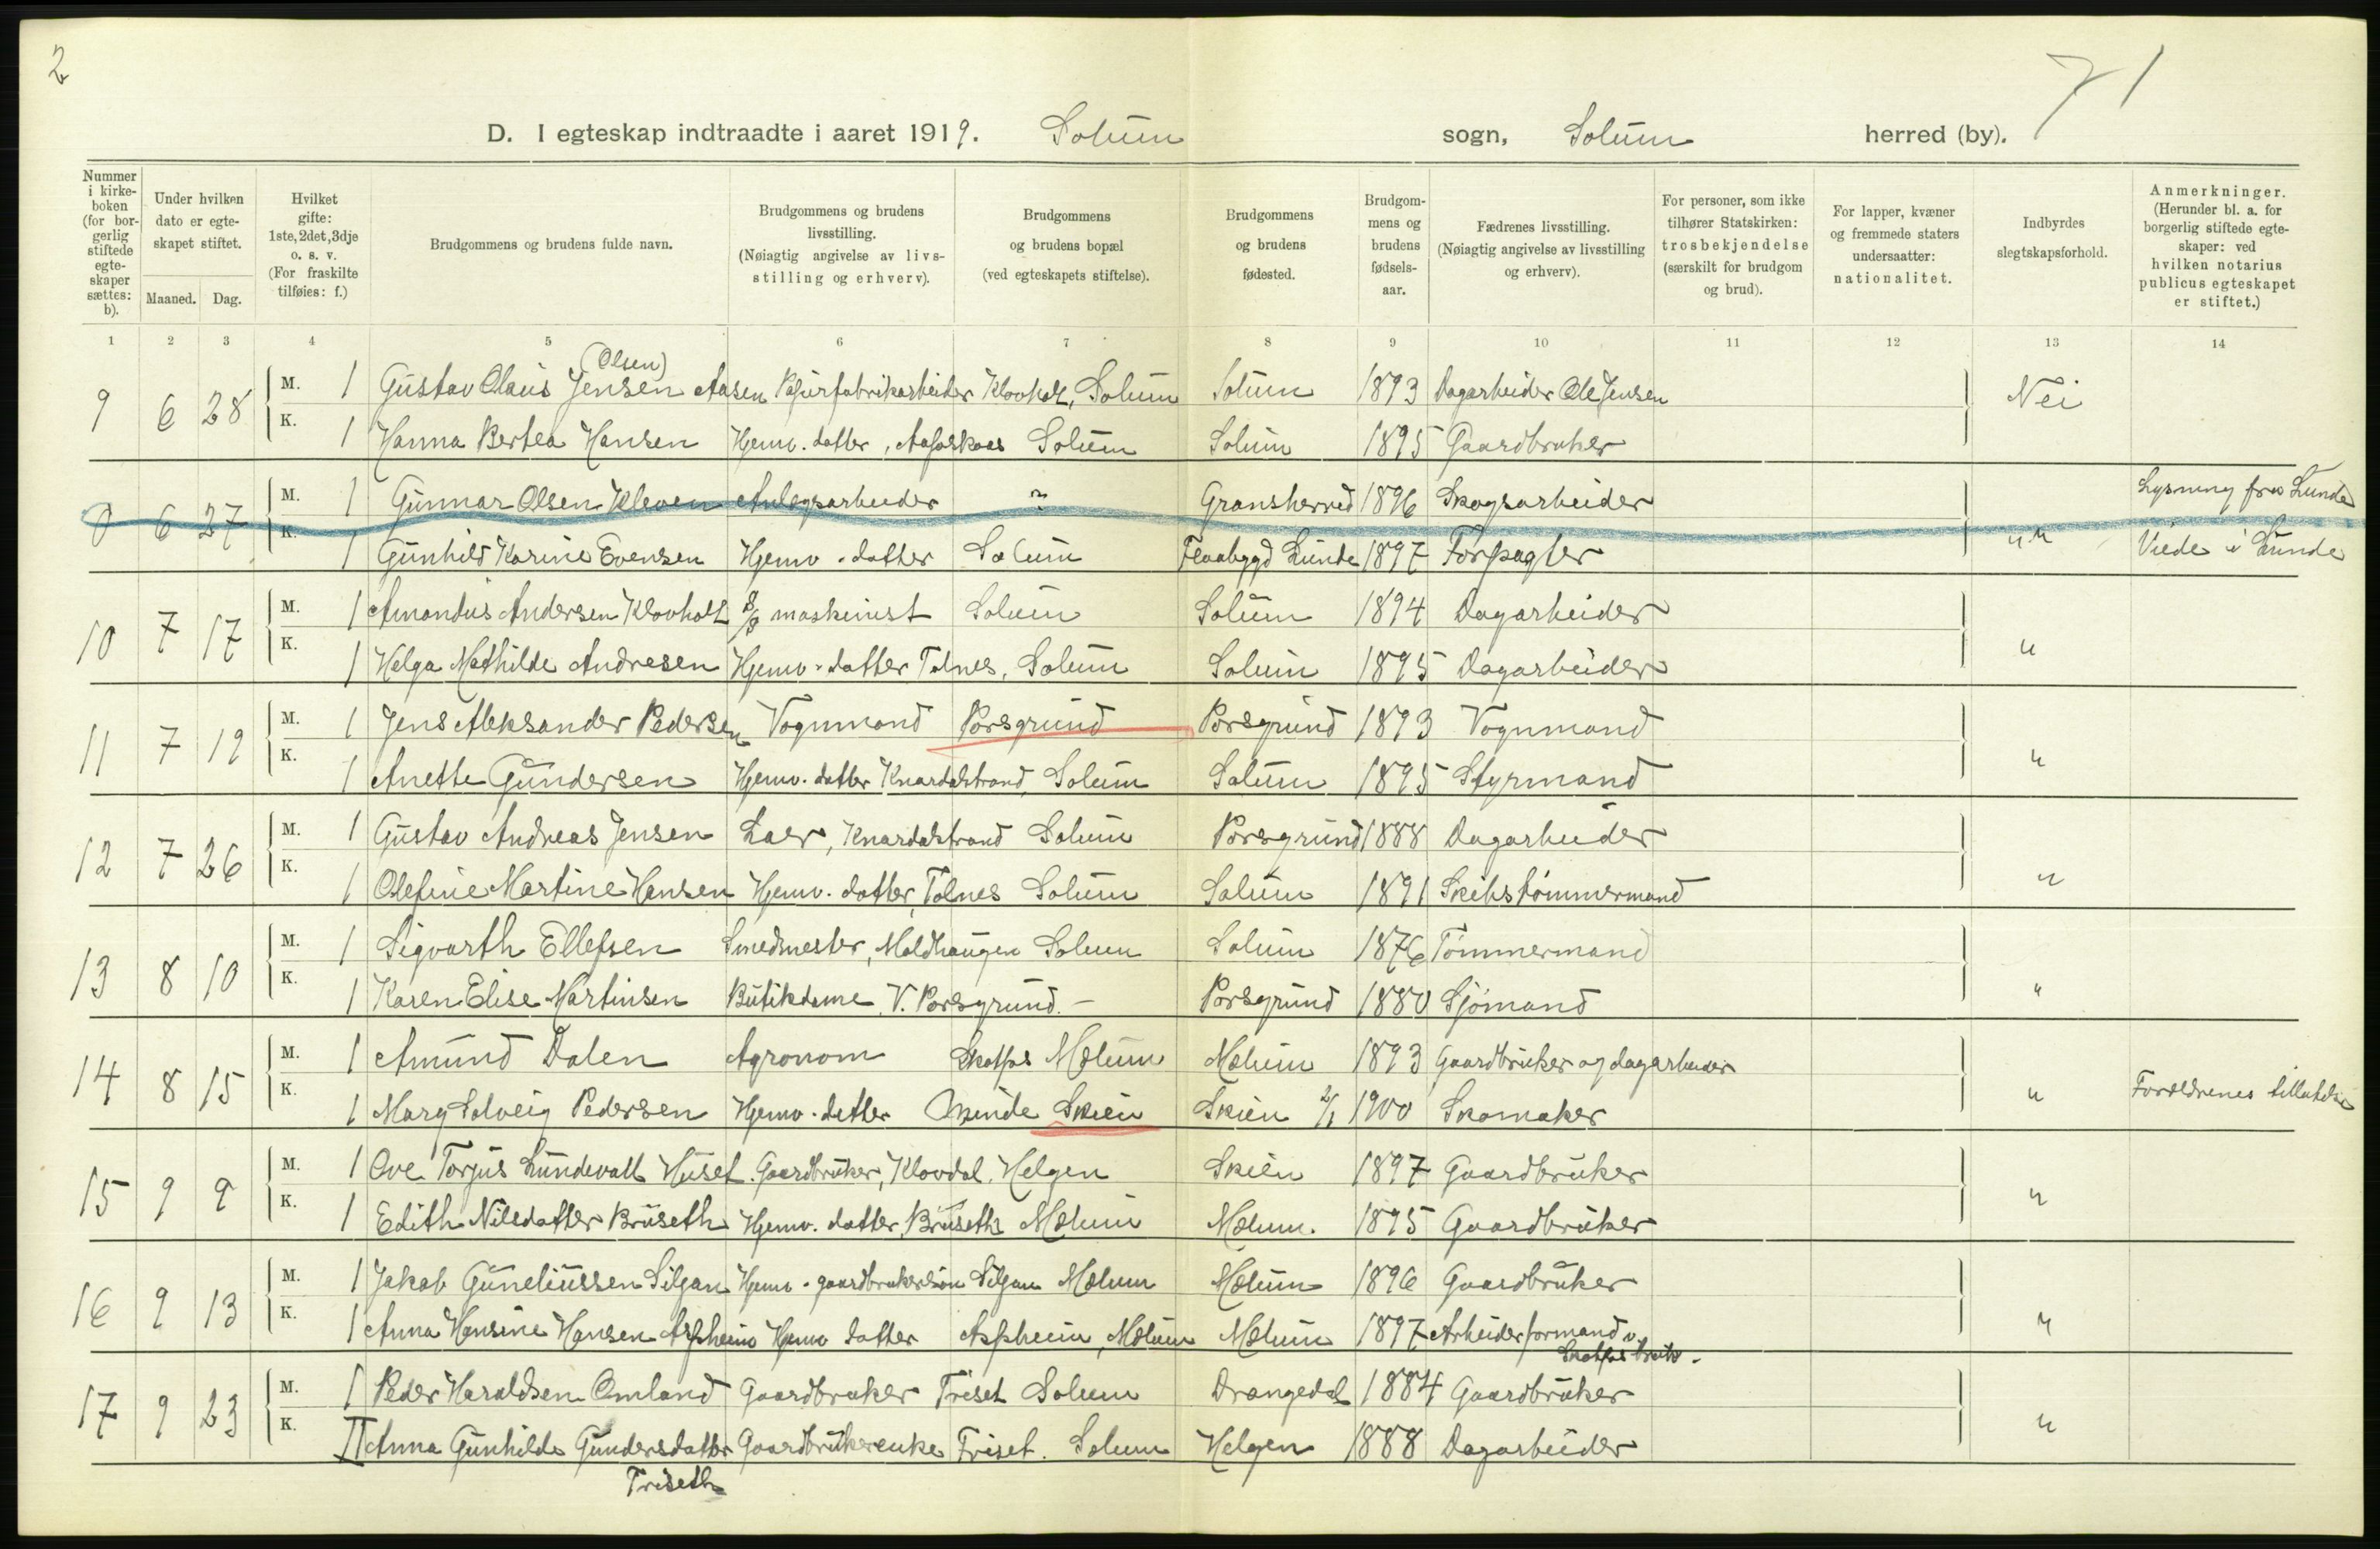 2
71
D. I egteskap indtraadte i aaret 1919. Solum sogn, Solum herred (by).
Nummer i kirke-boken (for bor-gerlig stiftede egte-skaper sættes: b).
Under hvilken dato er egte-skapet stiftet.
Maaned. Dag.
Hvilket gifte: 1ste, 2det, 3dje o. s. v. (For fraskilte tilføies: f.)
Brudgommens og brudens fulde navn.
Brudgommens og brudens livsstilling. (Nøiagtig angivelse av livs-stilling og erhverv).
Brudgommens og brudens bopæl (ved egteskapets stiftelse).
Brudgommens og brudens fødested.
Brudgom-mens og brudens fødsels-aar.
Fædrenes livsstilling. (Nøiagtig angivelse av livsstilling og erhverv).
For personer, som ikke tilhører Statskirken: trosbekjendelse (særskilt for brudgom og brud).
For lapper, kvæner og fremmede staters undersaatter: nationalitet.
Indbyrdes slegtskapsforhold.
Anmerkninger. (Herunder bl. a. for borgerlig stiftede egte-skaper: ved hvilken notarius publicus egteskapet er stiftet.)
1 2 3 4 5 6 7 8 9 10 11 12 13 14
(Olsen)
9 6 28 M. 1 Gustav Olaus Jensen Aasen Papirfabrikarbeider Klovholt, Solum Solum 1893 Dagarbeider Ole Jensen Nei
K. 1 Hanna Bertea Hansen Hjemv. datter, Solum Solum 1895 Gaardbruker
0 6 27 M. 1 Gunnar Olsen Kleven Anlegsarbeider ? Gransherred 1896 Skogsarbeider Lysning fra Lunde
K. 1 Gunhild Karine Evensen Hjemv. datter Solum Flaabygd Lunde 1897 Forpagter " " Viede i Lunde
10 7 17 M. 1 Amandus Andersen Klovholt D/S maskinist Solum Solum 1894 Dagarbeider
K. 1 Helga Mathilde Andresen Hjemv. datter Tolnes, Solum Solum 1895 Dagarbeider "
11 7 19 M. 1 Jens Aleksander Pedersen Vognmand Porsgrund Porsgrund 1893 Vognmand
K. 1 Anette Gundersen Hjemv. datter Knardalstrand, Solum Solum 1895 Styrmand "
12 7 26 M. 1 Gustav Andreas Jensen Laer, Knardalstrand Solum Porsgrund 1888 Dagarbeider
K. 1 Olefine Martine Hansen Hjemv. datter, Tolnes Solum Solum 1891 Skibstømmermand "
13 8 10 M. 1 Sigvarth Ellefsen Smedmester, Moldhaugen Solum Solum 1876 Tømmermand
K. 1 Karen Elise Martinsen Butikdame V. Porsgrund. - Porsgrund 1880 Sjømand "
14 8 15 M. 1 Amund Dalen Agronom Skotfos Mælum Mælum 1893 Gaardbruker og dagarbeider
K. 1 Mary Solveig Pedersen Hjemv. datter Skien Skien 2/1 1900 Skomaker " Forældrenes tillatelse
15 9 9 M. 1 Ove Torjus Lundevall Huset. Gaardbruker, Klovdal, Helgen Skien 1897 Gaardbruker
K. 1 Edith Nilsdatter Bruseth Hjemv. datter, Bruseth Mælum Mælum. 1895 Gaardbruker "
16 9 13 M. 1 Jakob Guneliussen Siljan Hjemv. gaardbrukersøn Siljan Mælum Mælum 1896 Gaardbruker
K. 1 Anna Hansine Hansen Aspheim Hjemv datter Aspheim, Mælum Mælum 1897 Arbeiderformand v. "
Skotfos bruk -
17 9 23 M. 1 Peder Haraldsen Omland Gaardbruker Friset Solum Drangedal 1884 Gaardbruker
K. II Anna Gunhilde Gundersdatter Gaardbrukerenke Friset. Solum Helgen 1888 Dagarbeider "
Friseth